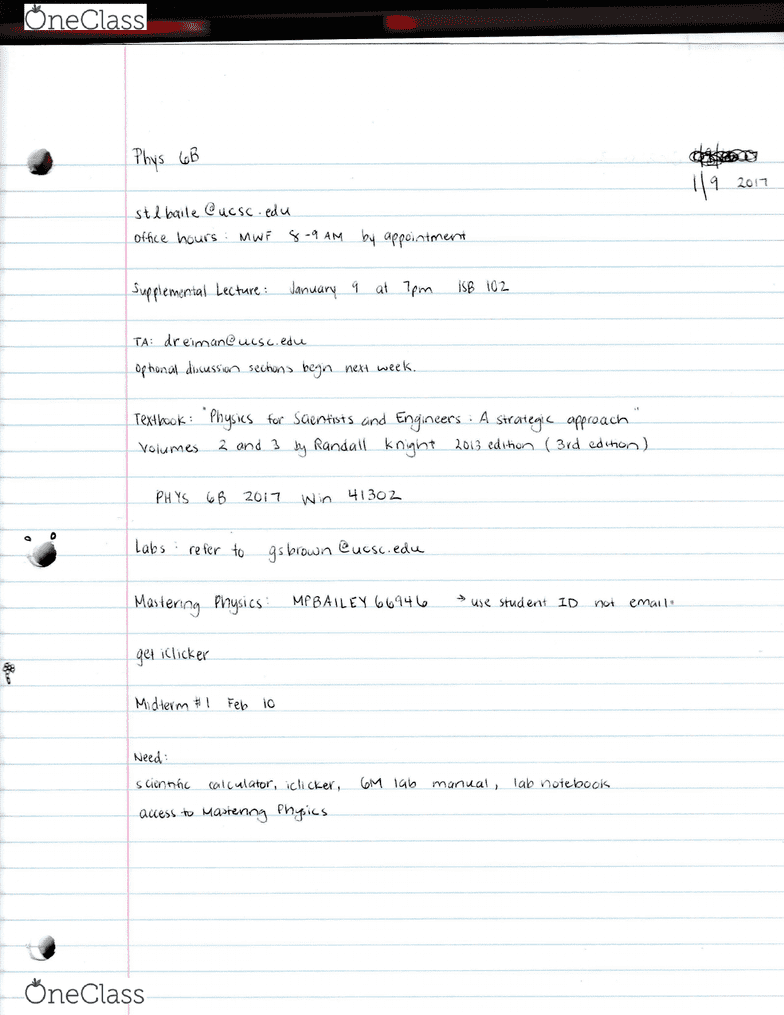 OneClass
Phys 6B
1/9 2017
stlbaile@ucsc.edu
office hours: MWF 8-9 AM by appointment
Supplemental Lecture: January 9 at 7pm ISB 102
TA: dreiman@ucsc.edu
optional discussion sections begin next week.
Textbook: "Physics for Scientists and Engineers: A strategic approach"
Volumes 2 and 3 by Randall Knight 2013 edition (3rd edition)
PHYS 6B 2017 Win 41302
Labs: refer to gsbrown@ucsc.edu
Mastering Physics: MPBAILEY66946 → use student ID not email.
get iClicker
Midterm #1 Feb 10
Need:
scientific calculator, iclicker, 6M lab manual, lab notebook
access to Mastering Physics
OneClass